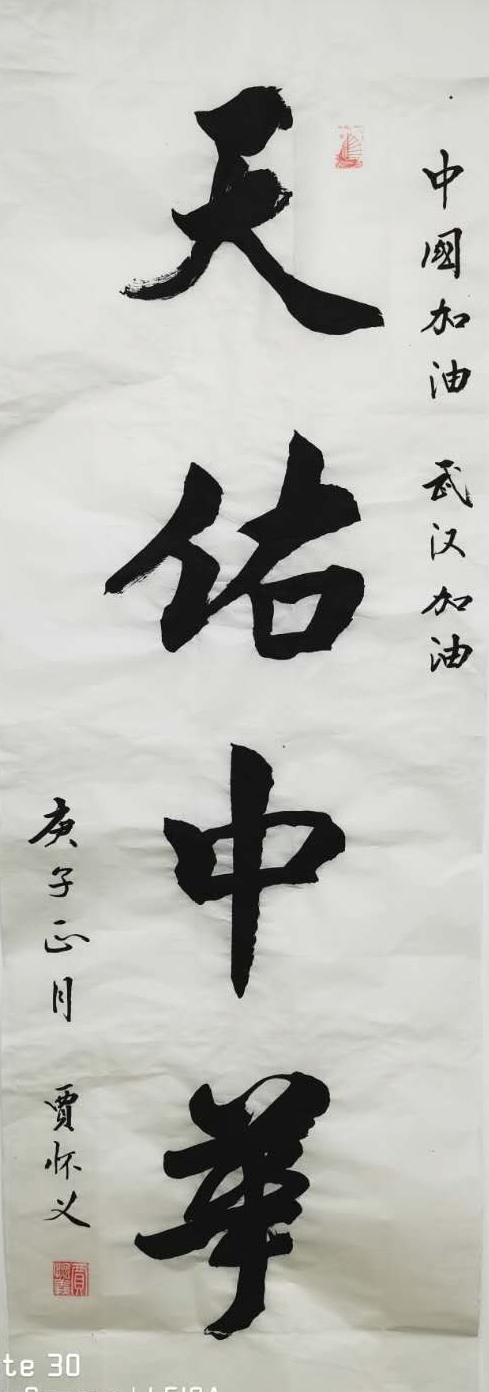 中國加油 武汉加油
天佑中华
庚子正月 賈怀义
te 30
LEICA